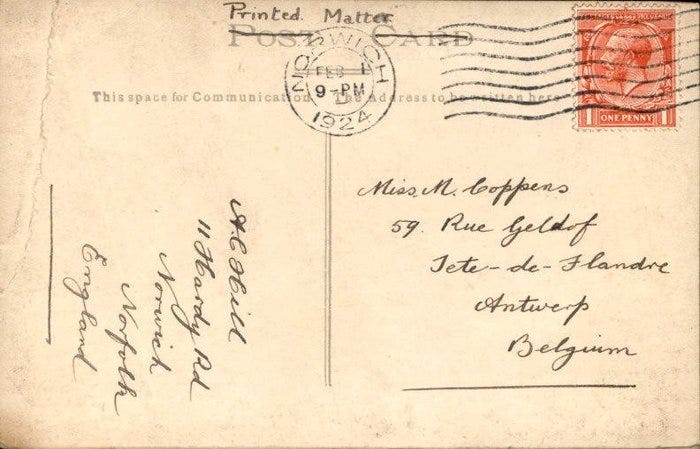 Printed Matter
POST CARD
NORWICH
FEB 1
9-PM
1924
ONE PENNY
This space for Communication The Address to be written here
Miss. M. Coppens
59. Rue Geldof
Tete-de-Flandre
Antwerp
Belgium
A C Hill
11 Hardy Rd
Norwich
Norfolk
England